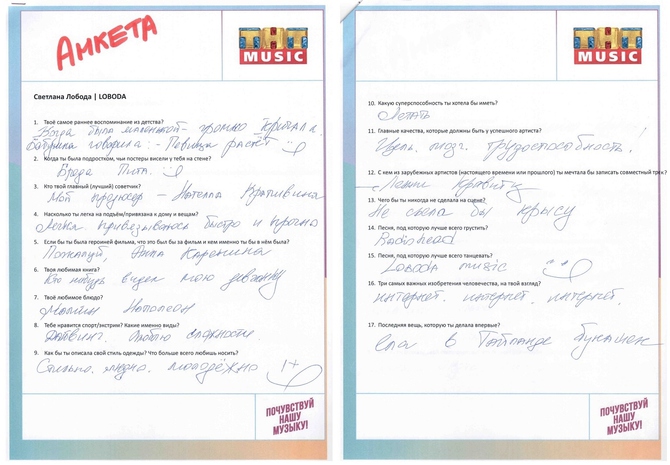 АНКЕТА
ТНТ
MUSIC
Светлана Лобода | LOBODA
1. Твоё самое раннее воспоминание из детства?
Когда была маленькой - громко кричала.
Бабушка говорила: - Певица растёт
2. Когда ты была подростком, чьи постеры висели у тебя на стене?
Брэда Пита.
3. Кто твой главный (лучший) советчик?
Мой продюсер - Нателла Крапивина
4. Насколько ты легка на подъём/привязана к дому и вещам?
Легка, привязываюсь быстро и прочно
5. Если бы ты была героиней фильма, что это был бы за фильм и кем именно ты бы в нём была?
Пожалуй, Анна Каренина
6. Твоя любимая книга?
Кто нибудь видел мою девчонку
7. Твоё любимое блюдо?
Наполеон
8. Тебе нравится спорт/экстрим? Какие именно виды?
Дайвинг. Люблю
9. Как бы ты описала свой стиль одежды? Что больше всего любишь носить?
Стильно, модно, молодёжно
ПОЧУВСТВУЙ
НАШУ
МУЗЫКУ!
ТНТ
MUSIC
10. Какую суперспособность ты хотела бы иметь?
Летать
11. Главные качества, которые должны быть у успешного артиста?
трудоспособность!
12. С кем из зарубежных артистов (настоящего времени или прошлого) ты мечтала бы записать совместный трек?
Ленни Кравиц
13. Чего бы ты никогда не сделала на сцене?
Не съела бы крысу
14. Песня, под которую лучше всего грустить?
Radiohead
15. Песня, под которую лучше всего танцевать?
Loboda music
16. Три самых важных изобретения человечества, на твой взгляд?
интернет. интернет. интернет.
17. Последняя вещь, которую ты делала впервые?
ела в Тайланде
ПОЧУВСТВУЙ
НАШУ
МУЗЫКУ!